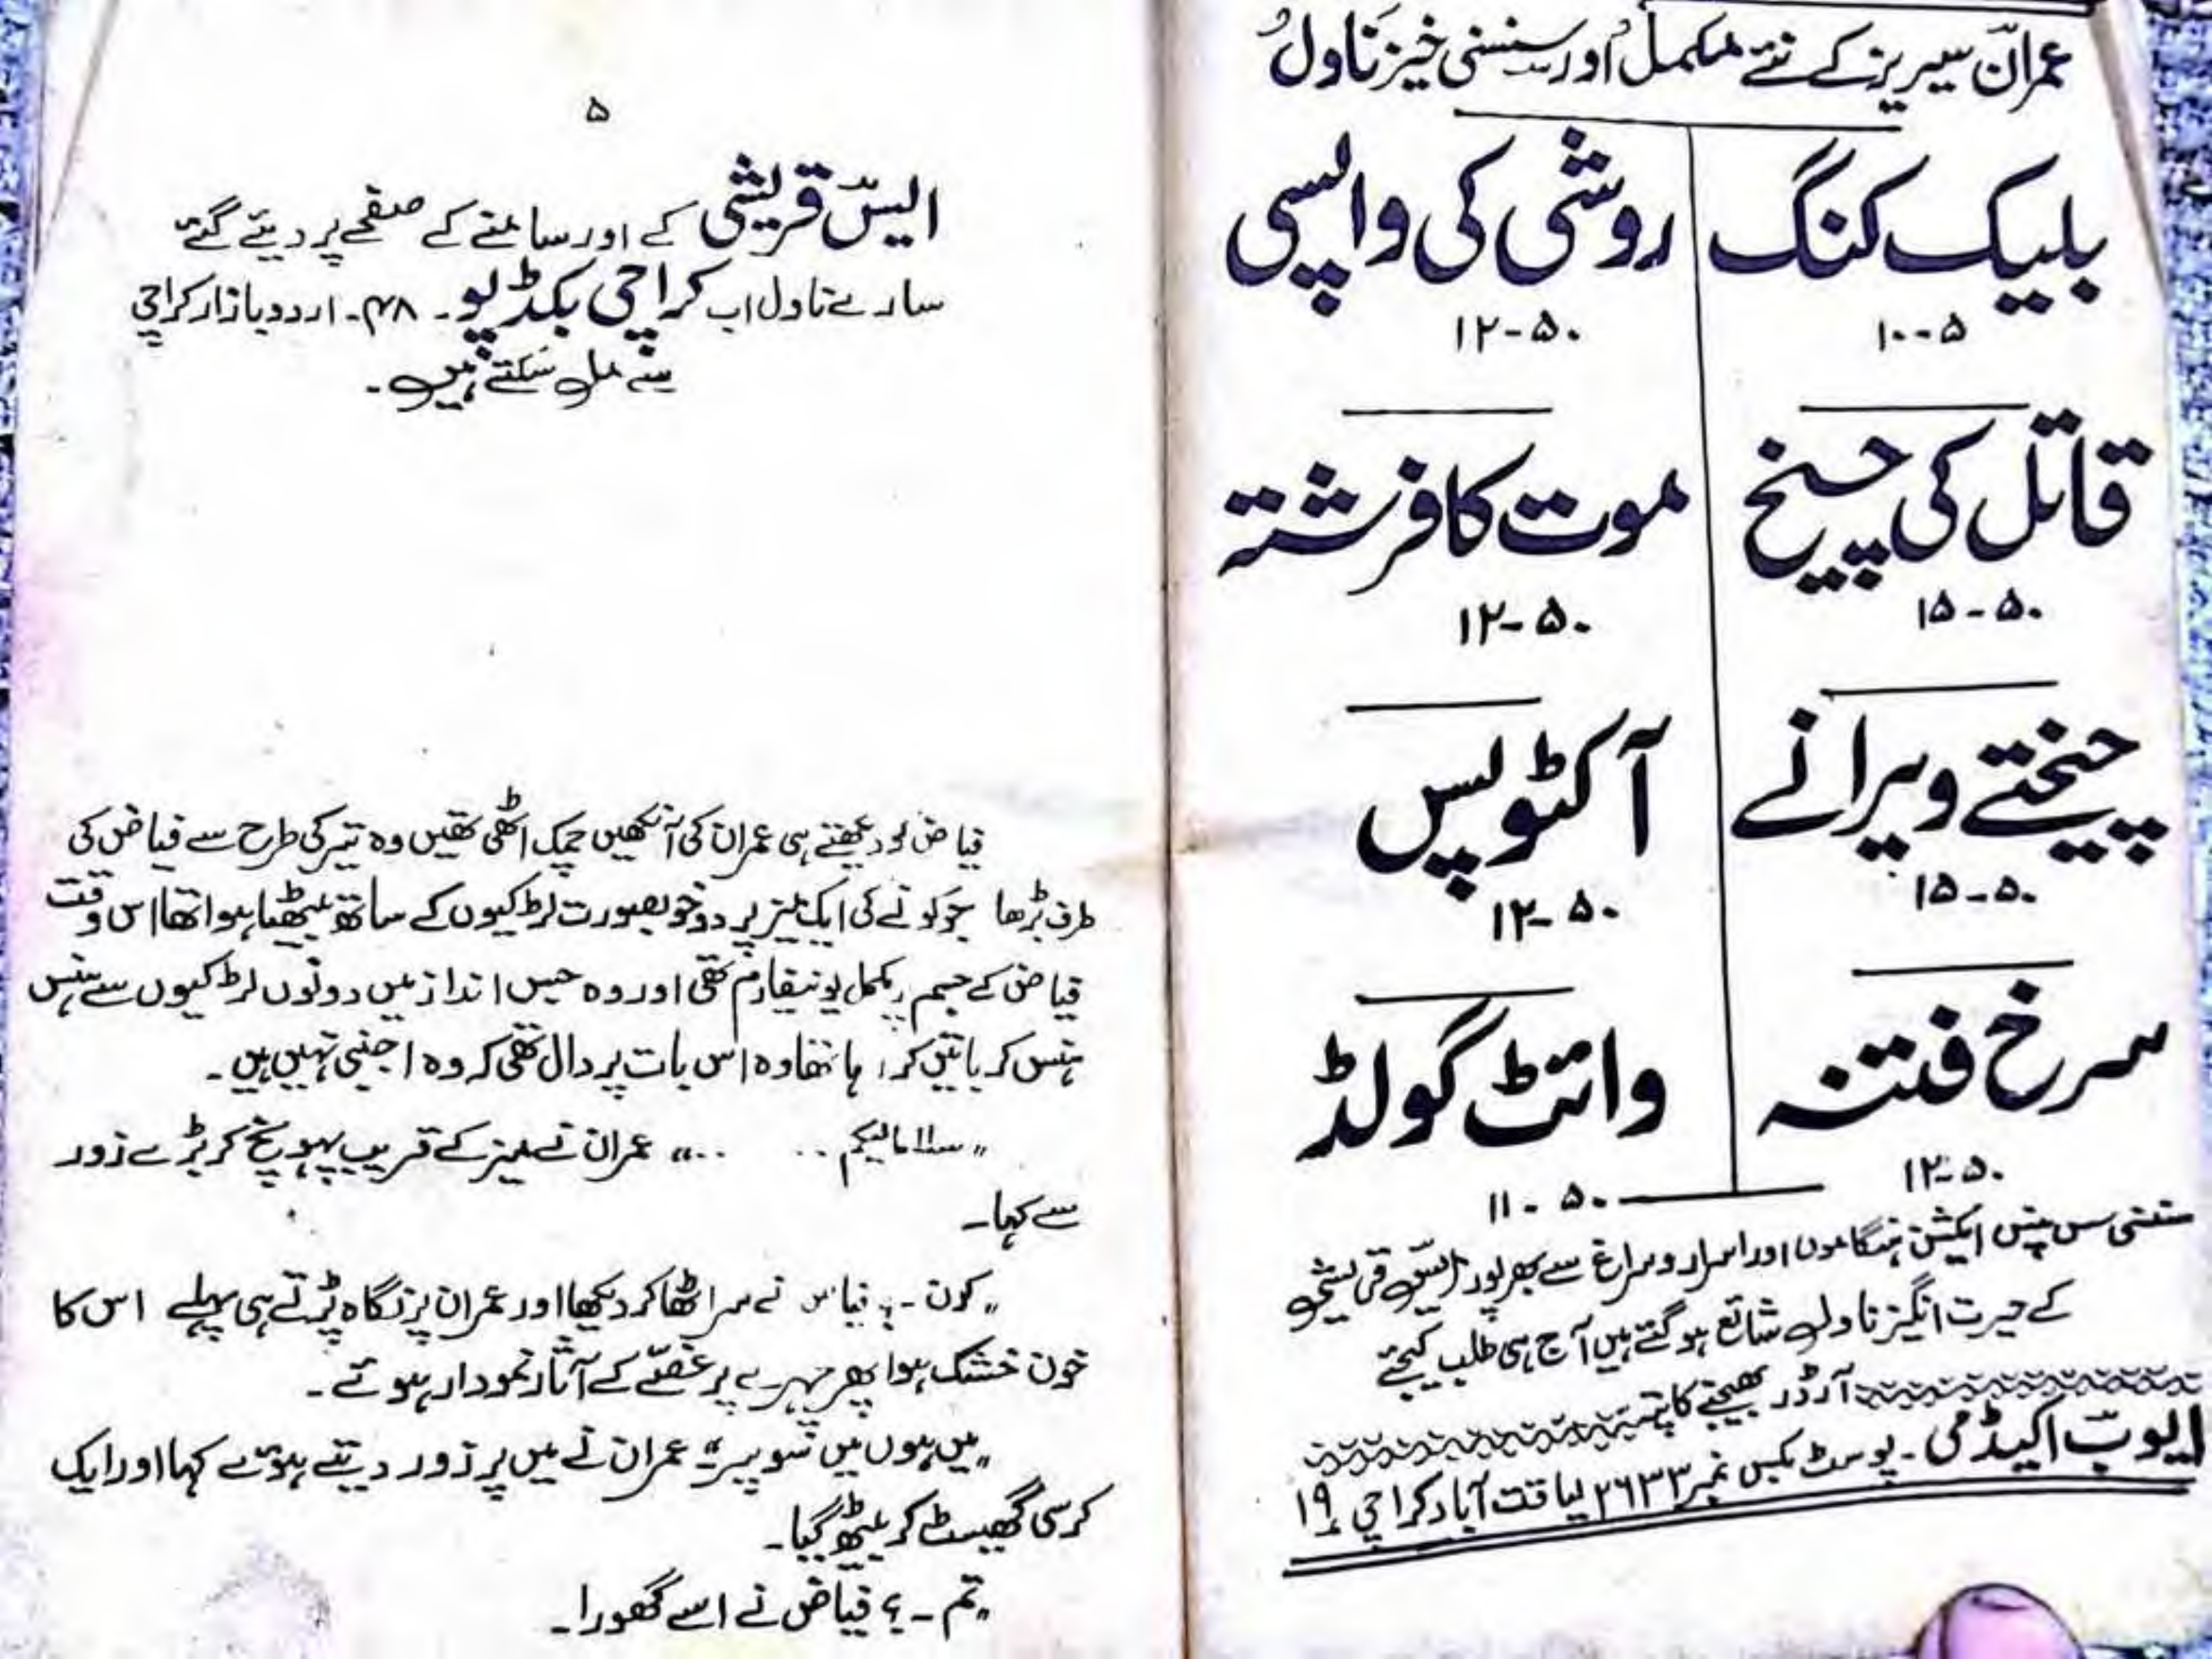 عمران سیریز کے نئے مکمل اور سنسنی خیز ناول
بلیک کنگ
۱۰-۵
روشی کی واپسی
۱۲-۵۰
قاتل کی چیخ
۱۵-۵۰
موت کا فرشتہ
۱۲-۵۰
چیختے ویرانے
۱۵-۵۰
آکٹوپس
۱۲-۵۰
سرخ فتنہ
۱۲-۵۰
وائٹ گولڈ
۱۱-۵۰
سنسنی سس پنس ایکشن ہنگاموں اور اسرار و سراغ سے بھرپور ایس قریشی
کے حیرت انگیز ناول شائع ہوگئے ہیں آج ہی طلب کیجئے
آرڈر بھیجنے کا پتہ
ایوب اکیڈمی - پوسٹ بکس نمبر ۲۶۳۳ لیاقت آباد کراچی ۱۹
۵
ایس قریشی کے اور سامنے کے صفحے پر دیئے گئے
سارے ناول اب کراچی بکڈپو - ۴۸ - اردو بازار کراچی
سے مل سکتے ہیں -
فیاض کو دیکھتے ہی عمران کی آنکھیں چمک اٹھی تھیں وہ تیر کی طرح سے فیاض کی
طرف بڑھا جو کونے کی ایک میز پر دو خوبصورت لڑکیوں کے ساتھ بیٹھا ہوا تھا اس وقت
فیاض کے جسم پر مکمل یونیفارم تھی اور وہ جس انداز میں دونوں لڑکیوں سے ہنس
ہنس کر باتیں کر رہا تھا وہ اس بات پر دال تھی کہ وہ اجنبی نہیں ہیں -
"سلاما لیکم .. .." عمران نے میز کے قریب پہونچ کر بڑے زور
سے کہا -
"کون - ؟ فیاض نے سر اٹھا کر دیکھا اور عمران پر نگاہ پڑتے ہی پہلے اس کا
خون خشک ہوا پھر چہرے پر غصّے کے آثار نمودار ہوئے -
"میں ہوں میں سوپر" عمران نے میں پر زور دیتے ہوئے کہا اور ایک
کرسی گھسیٹ کر بیٹھ گیا -
"تم - ؟ فیاض نے اسے گھورا -